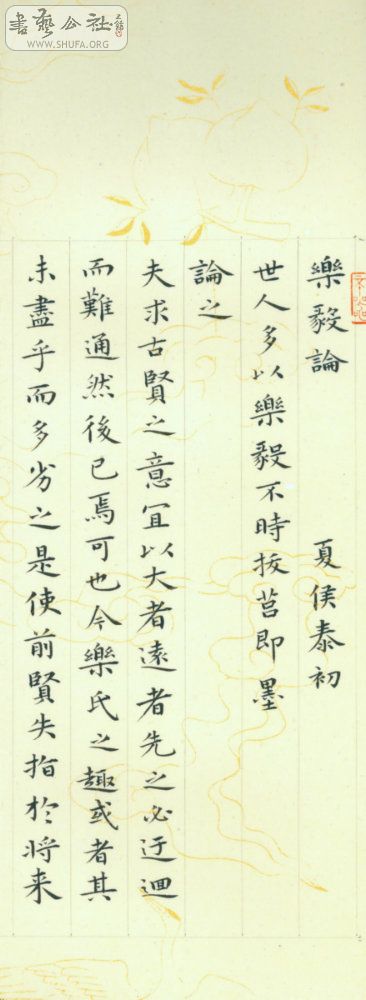 書藝公社
WWW.SHUFA.ORG
樂毅論 夏侯泰初
世人多以樂毅不時拔莒即墨
論之
夫求古賢之意宜以大者遠者先之必迂迴
而難通然後已焉可也今樂氏之趣或者其
未盡乎而多劣之是使前賢失指於將来